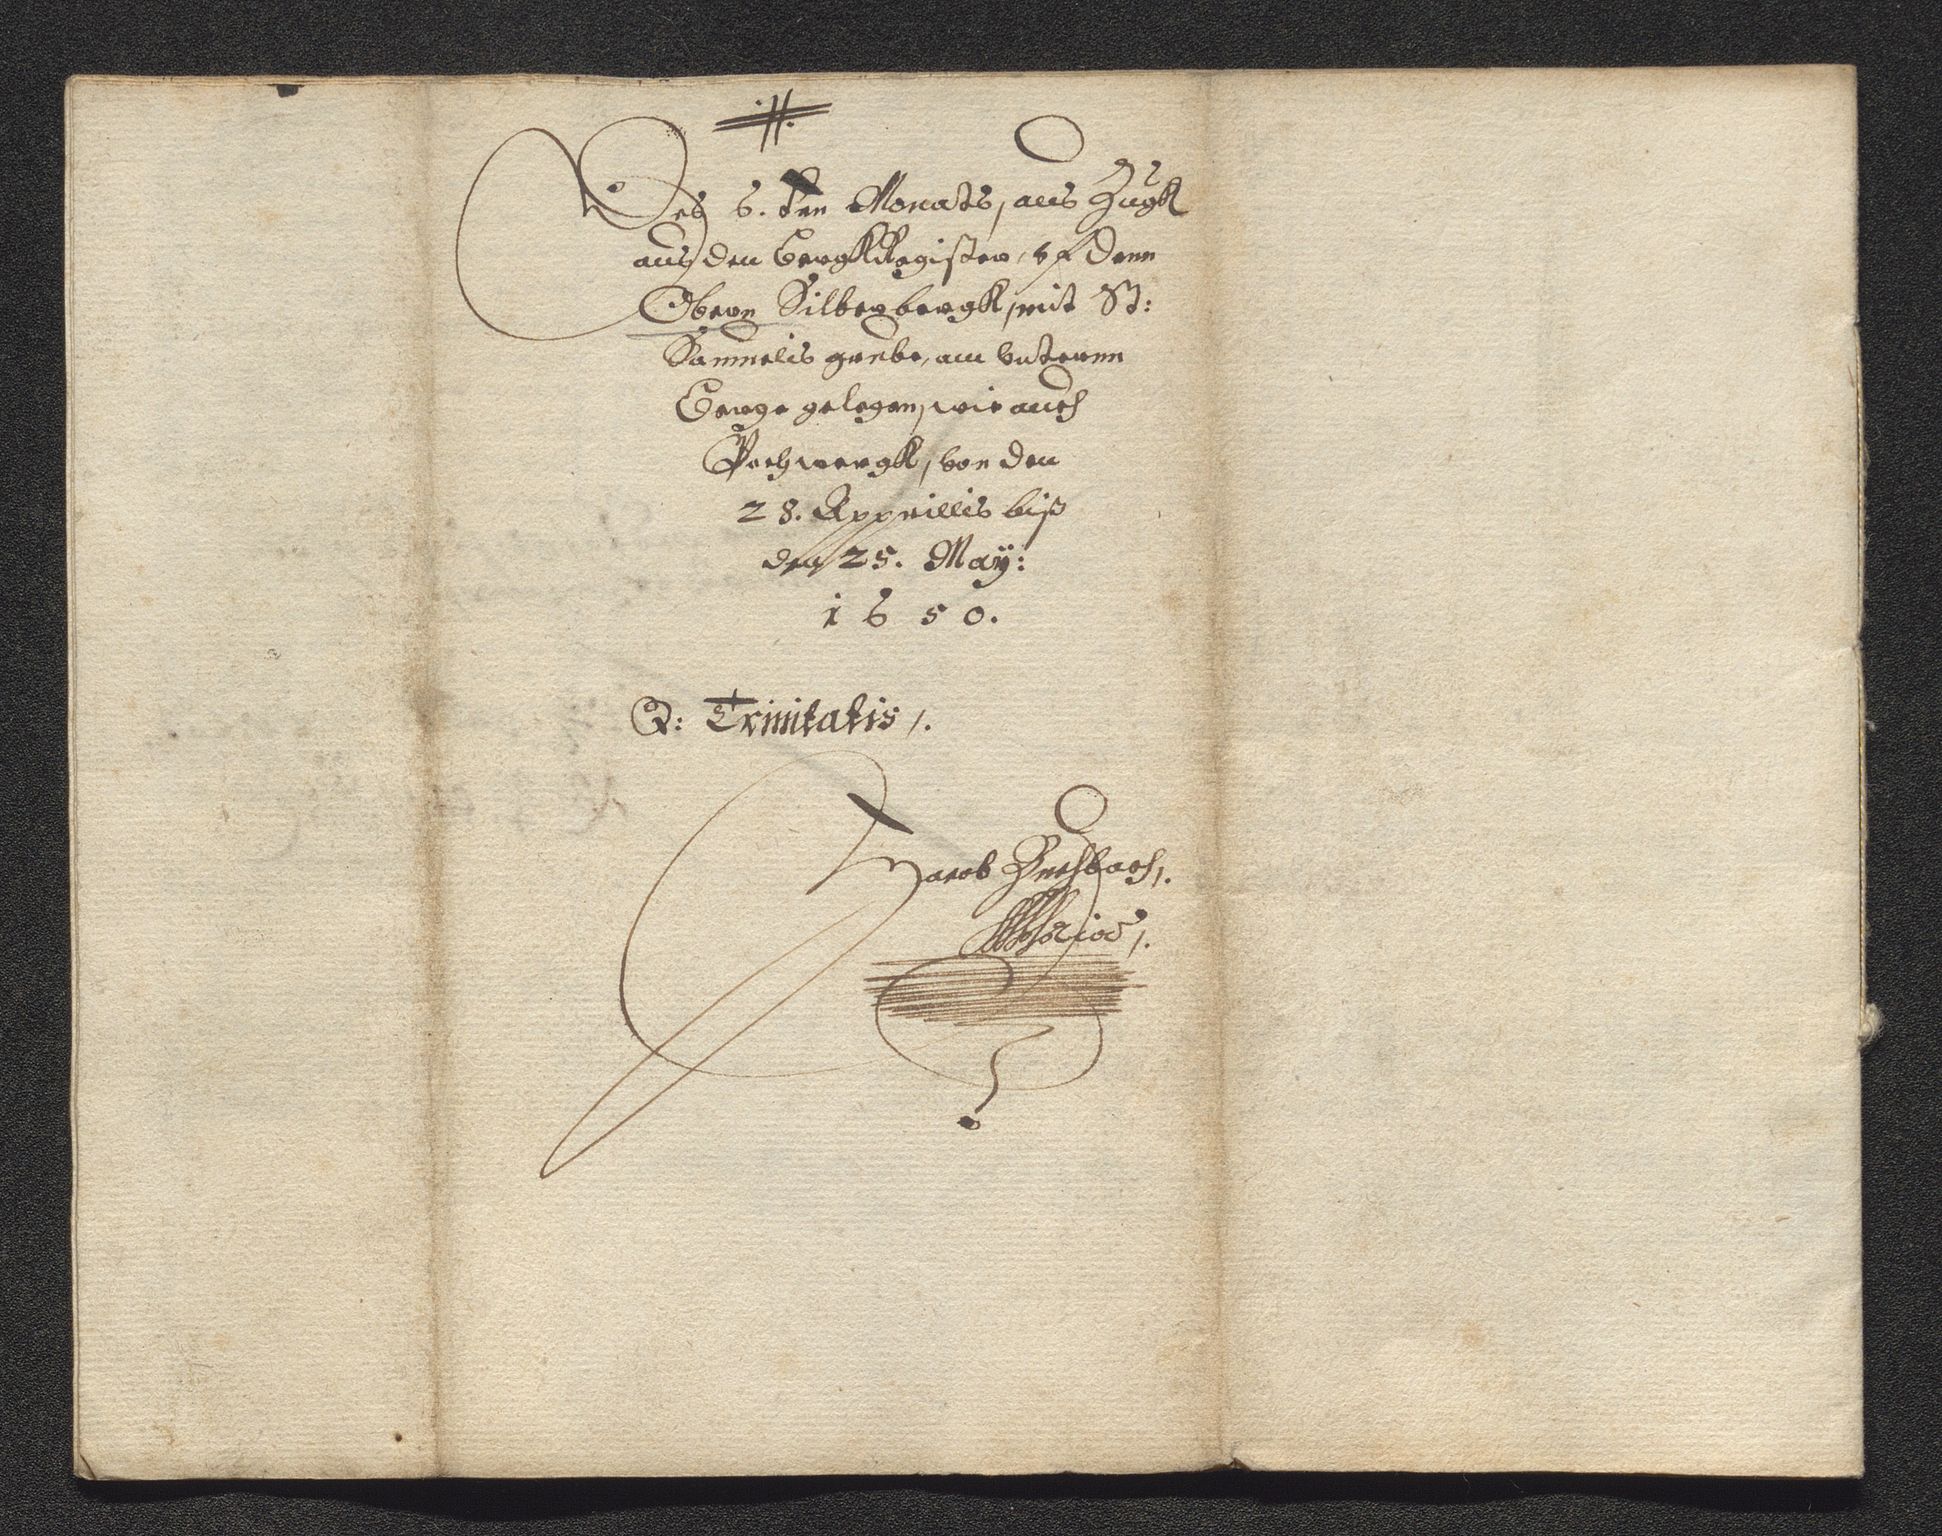 Des 6. ten Monats, aus Zugk
aus den BergkRegister, vf denn
Obern Silberbergk, mit St:
Samuelis grube, am Unternn
Berge gelegen, wie auch
Pochwergk, von den
28. Apprillis biß
den 25. Maÿ:
1650.
Q: Trinitatis /.
Jacob